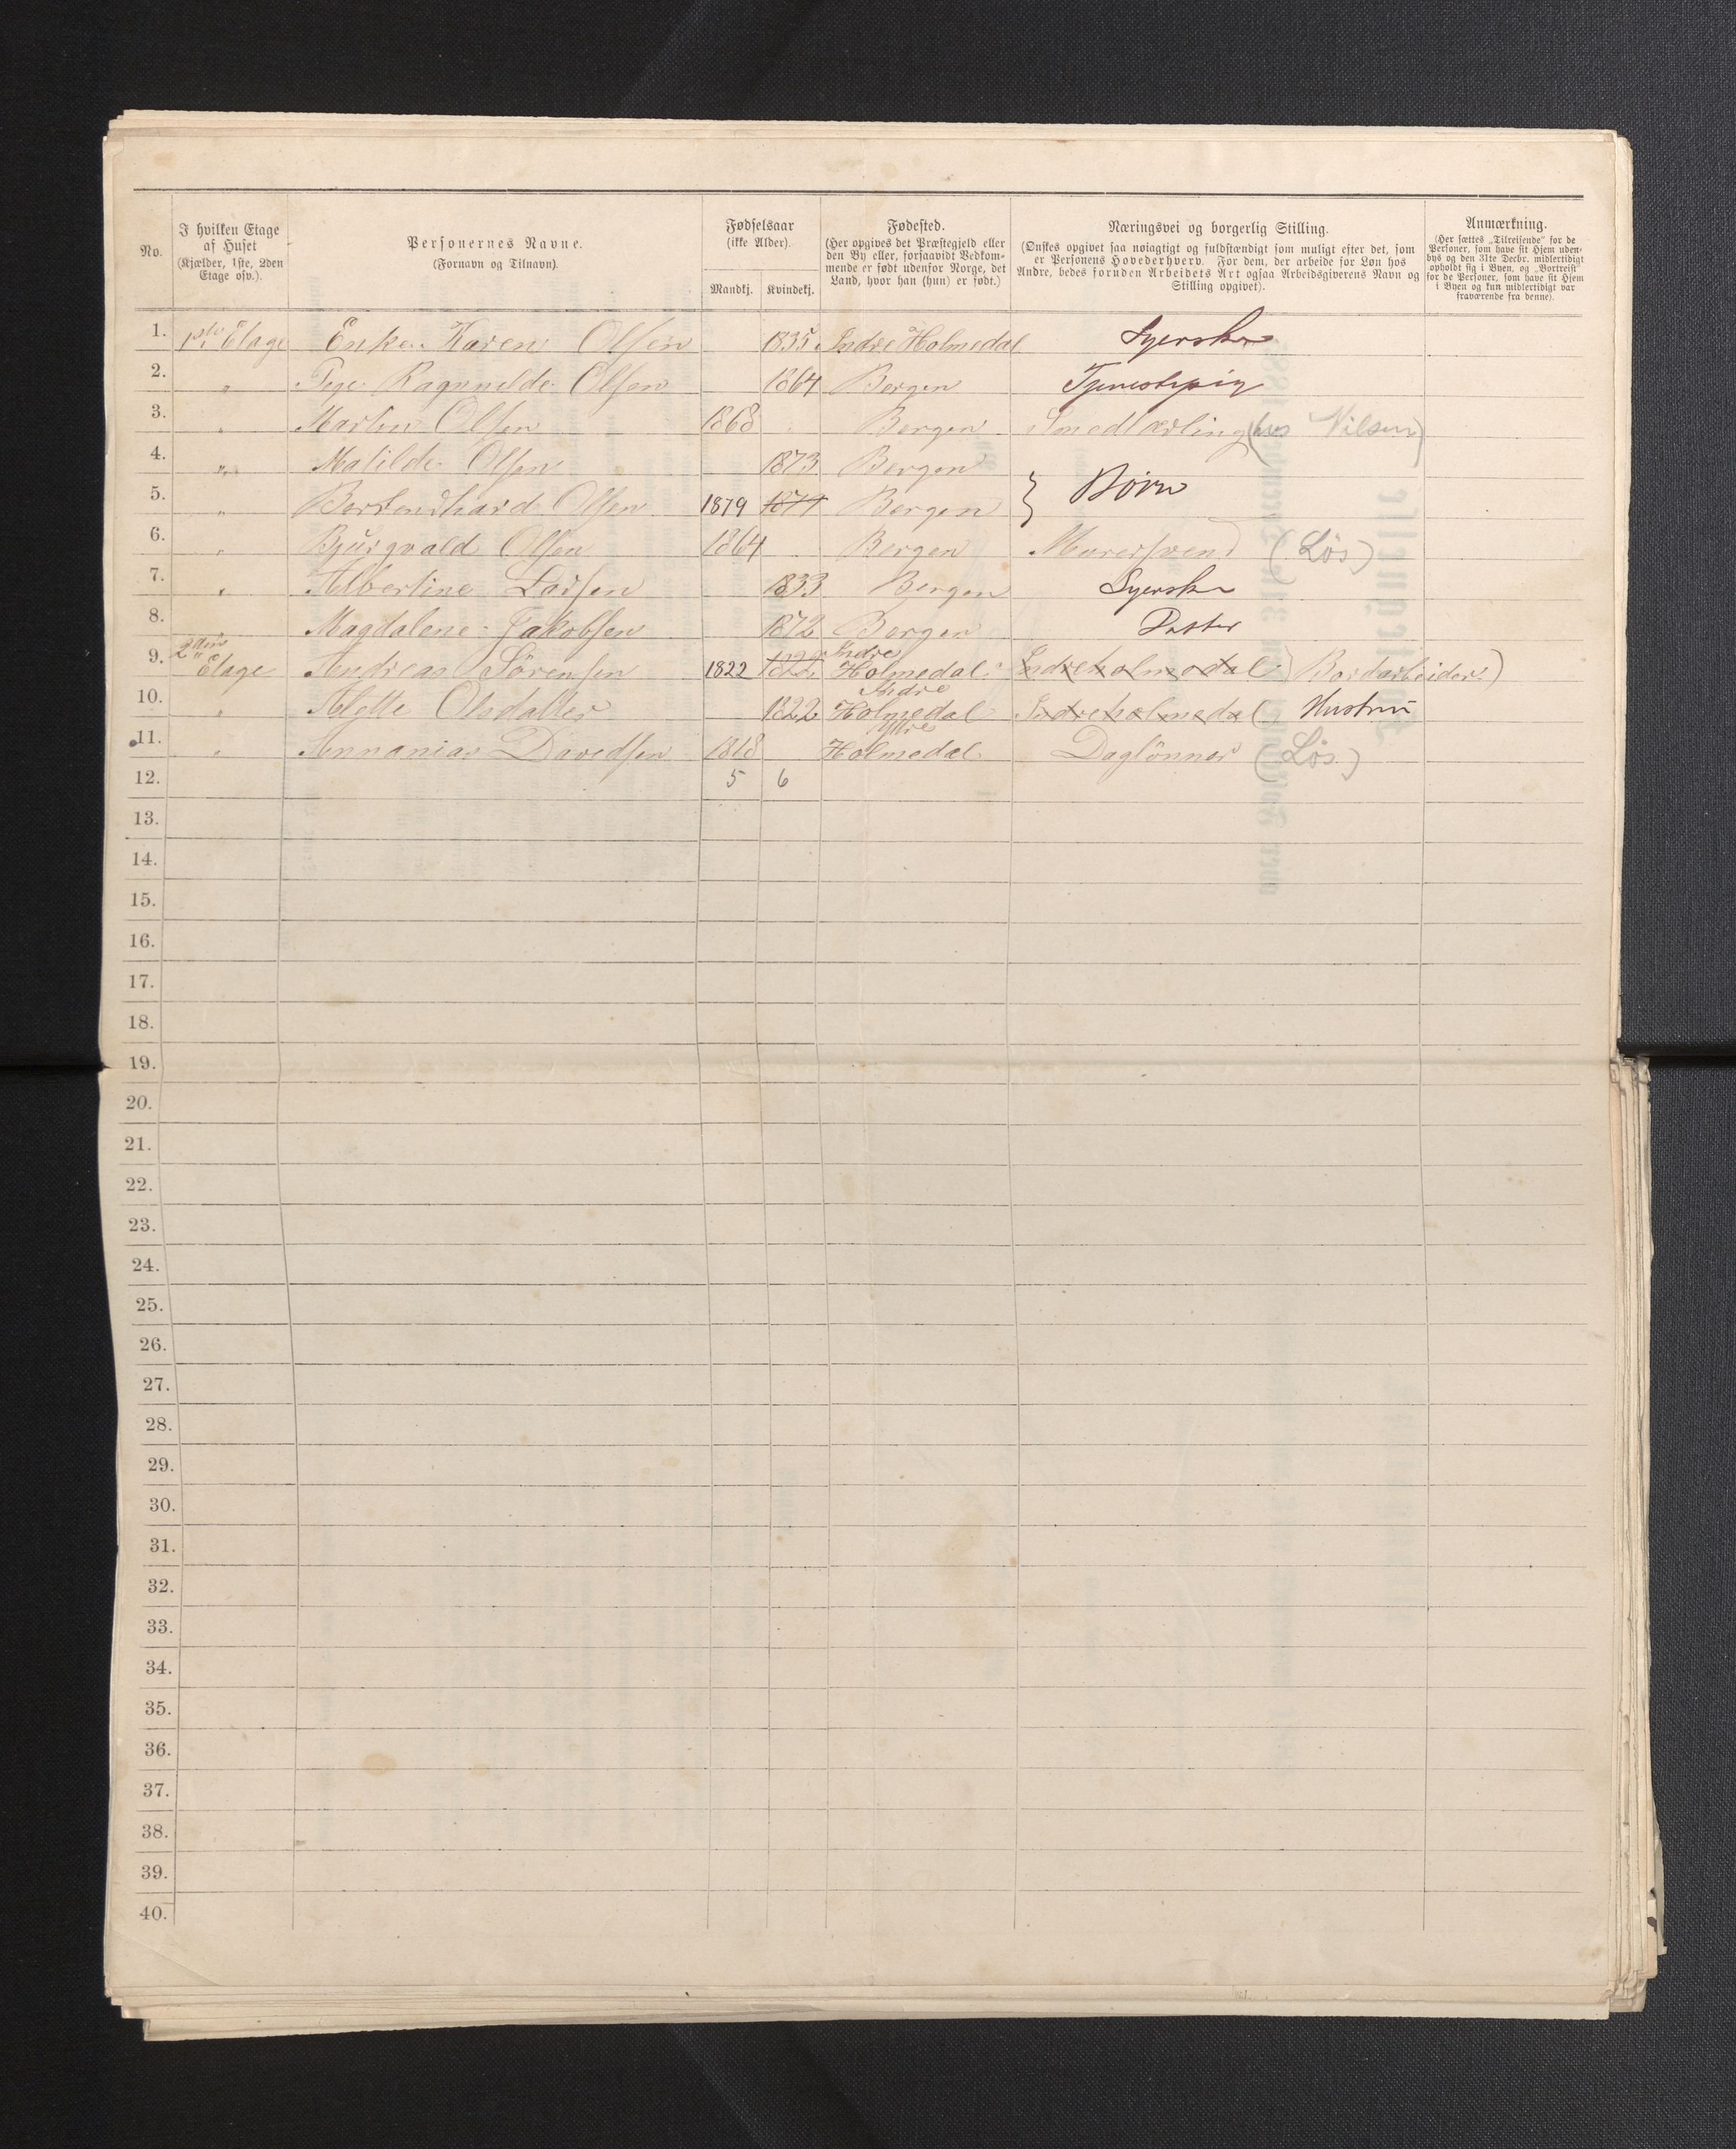 No. | I hvilken Etage af Huset (Kjælder, 1ste, 2den Etage osv.). | Personernes Navne. (Fornavn og Tilnavn). | Fødselsaar (ikke Alder). Mandkj. | Kvindekj. | Fødested. (Her opgives det Præstegjeld eller den By eller, forsaavidt Vedkommende er født udenfor Norge, det Land, hvor han (hun) er født.) | Næringsvei og borgerlig Stilling. (Ønskes opgivet saa nøiagtigt og fuldstændigt som muligt efter det, som er Personens Hovederhverv. For dem, der arbeide for Løn hos Andre, bedes foruden Arbeidets Art ogsaa Arbeidsgiverens Navn og Stilling opgivet). | Anmærkning. (Her sættes „Tilreisende“ for de Personer, som have sit Hjem udenbys og den 31te Decbr. midlertidigt opholdt sig i Byen, og „Bortreist“ for de Personer, som have sit Hjem i Byen og kun midlertidigt var fraværende fra denne).
1. 1ste Etage Enke Karen Olsen 1835 Indre Holmedal Syerske
2. " Pige Ragnnilde Olsen 1864 Bergen Tjenestepig
3. " Martin Olsen 1868 Bergen Smedlærling (hos Nilsen)
4. " Matilde Olsen 1873 Bergen
} Børn
5. " Olsen 1879 Bergen
6. " Olsen 1864 Bergen Murersvend (Løs)
7. " Albertine Larsen 1833 Bergen Syerske
8. Magdalene Jakobsen 1872 Bergen Datter
9. 2den Etage Andreas Sörensen 1822 1822 Indre Holmedal Indreholmedal Bordarbeider)
10. " Alette Olsdatter 1822 Indre Holmedal Indreholmedal Hustru
11. " Annanias Davedsen 1818 Ytre Holmedal Daglönner (Løs)
12. 5 6
13.
14.
15.
16.
17.
18.
19.
20.
21.
22.
23.
24.
25.
26.
27.
28.
29.
30.
31.
32.
33.
34.
35.
36.
37.
38.
39.
40.